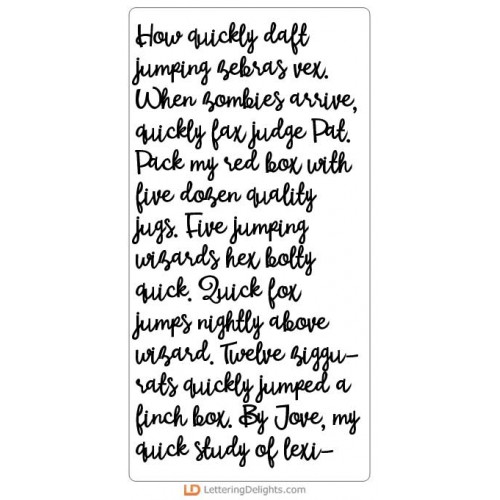 How quickly daft
jumping zebras vex.
When zombies arrive,
quickly fax judge Pat.
Pack my red box with
five dozen quality
jugs. Five jumping
wizards hex bolty
quick. Quick fox
jumps nightly above
wizard. Twelve ziggu-
rats quickly jumped a
finch box. By Jove, my
quick study of lexi-
LD LetteringDelights.com